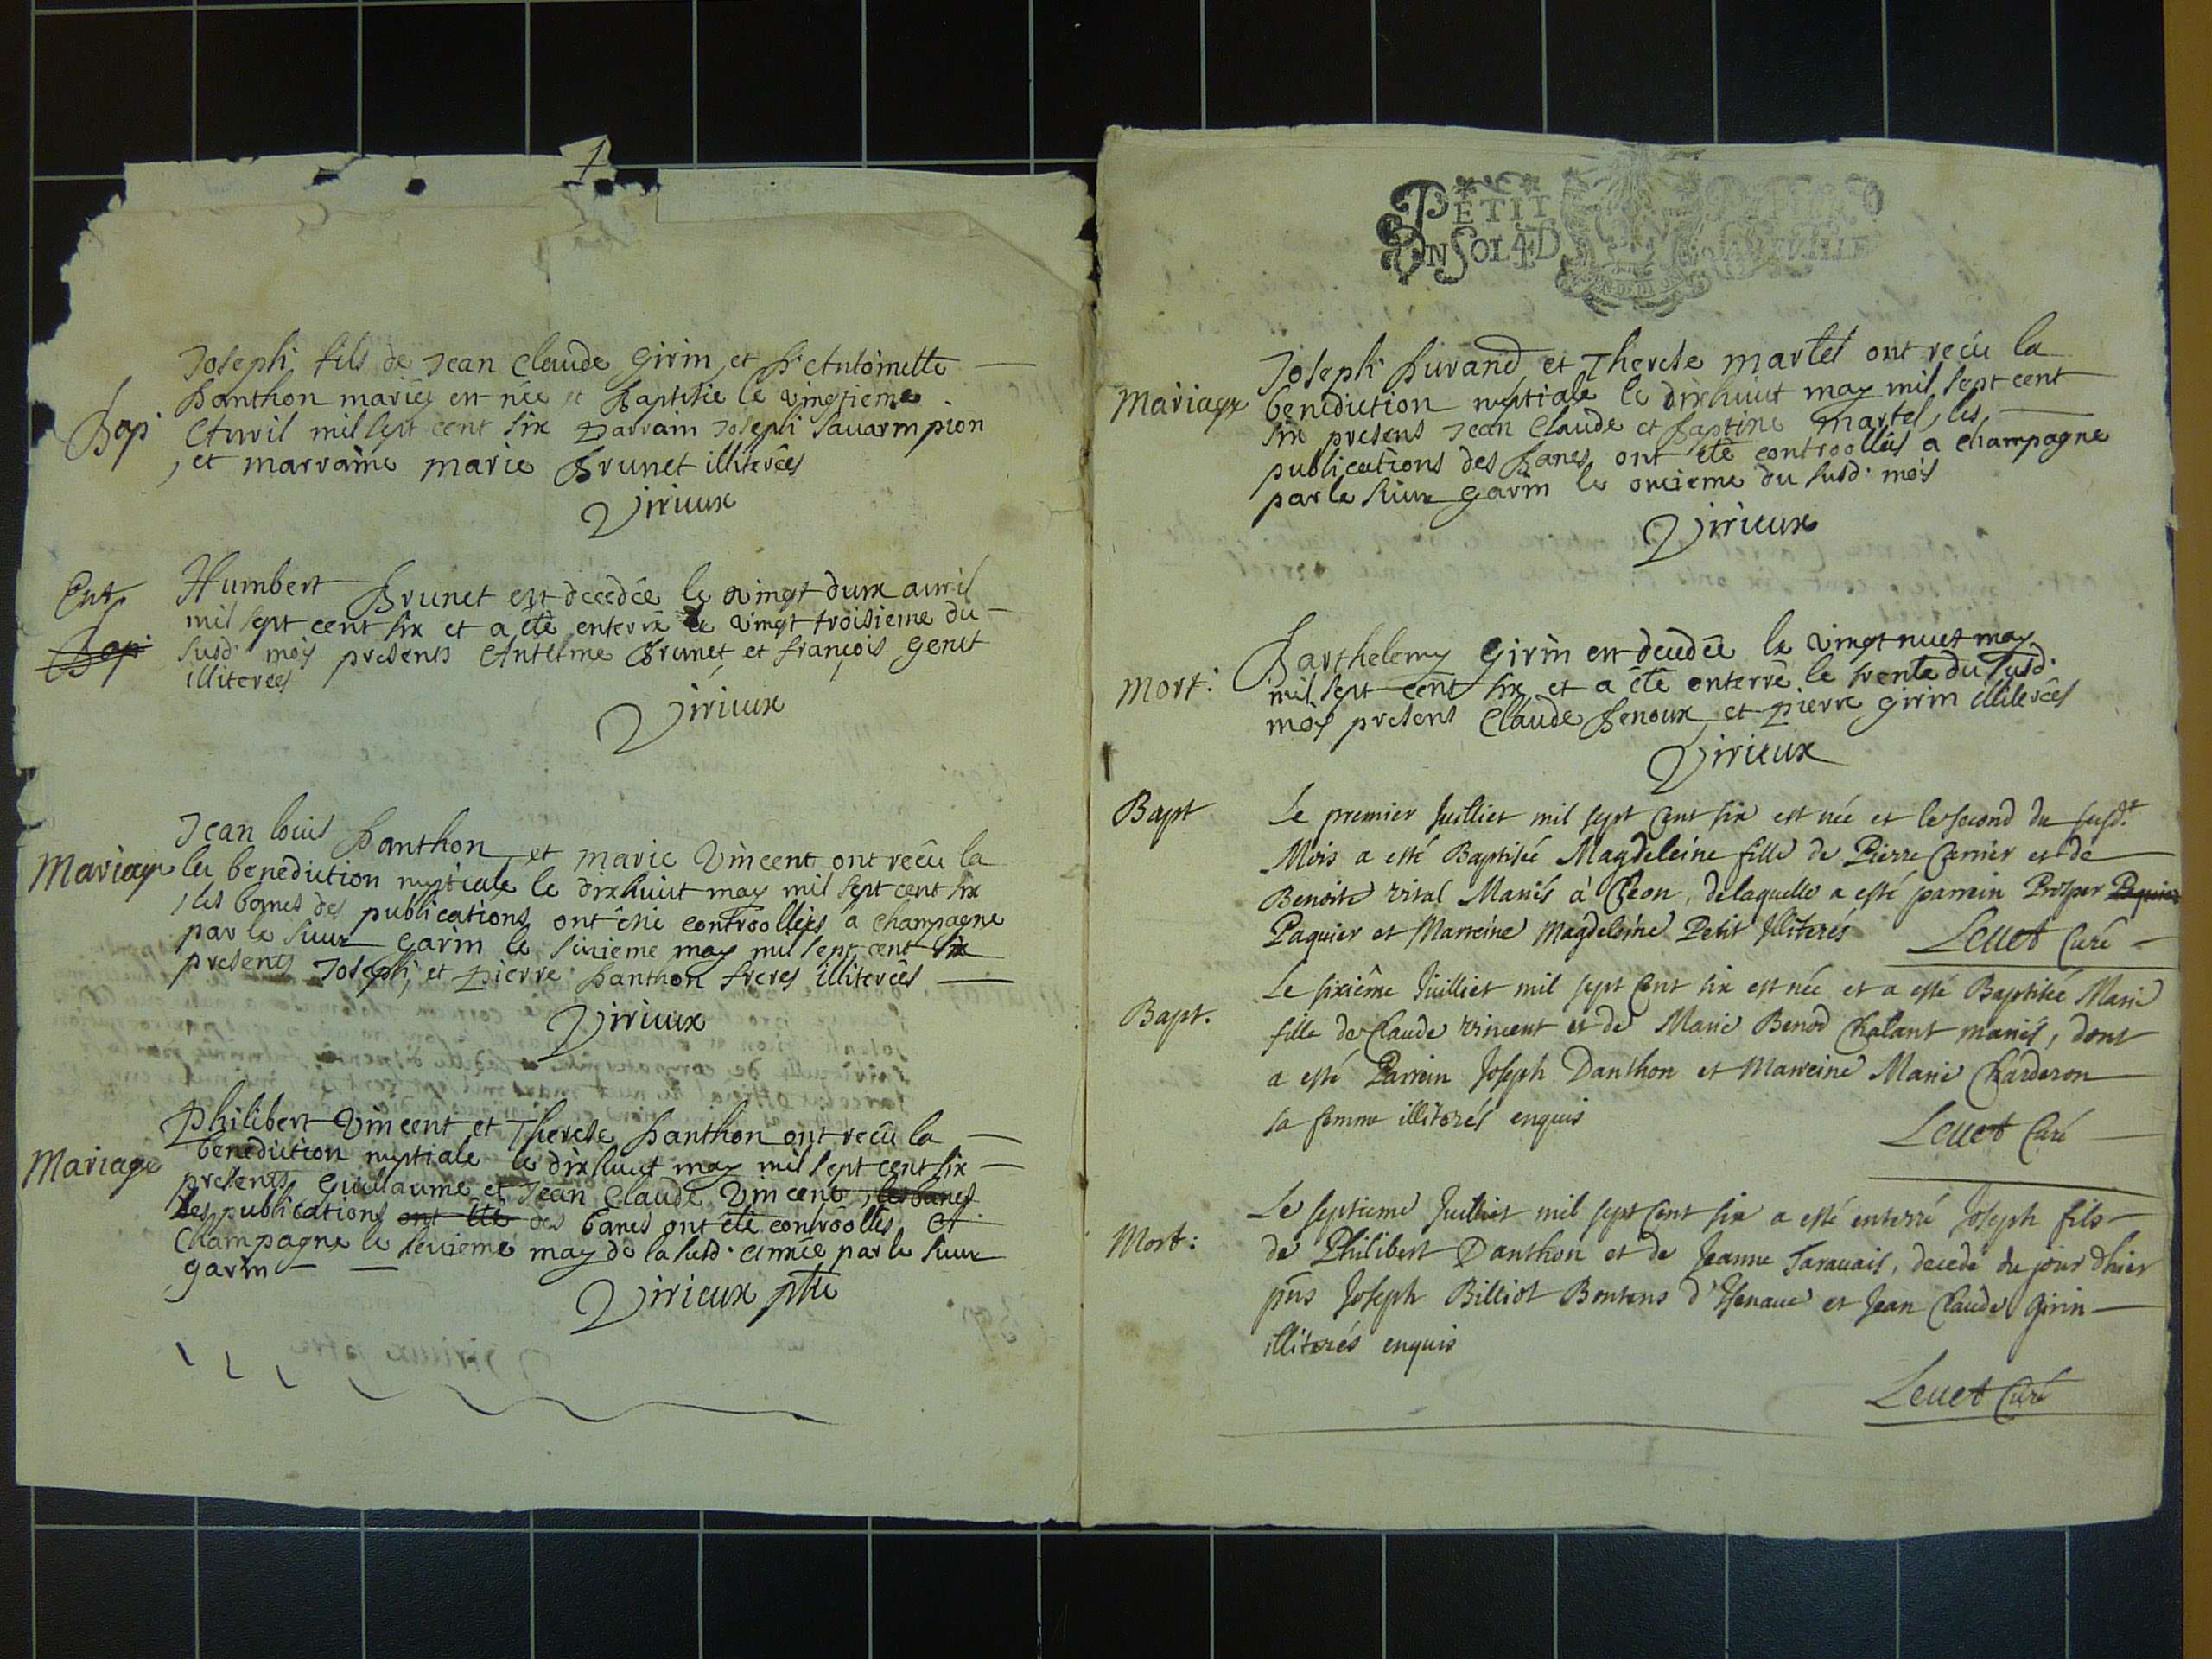 1
Joseph fils de Jean Claude Girin et D'Antoinette
Danthon mariés est née et Baptisée le vingtieme
Bap
Avril mil sept cent six Parrain Joseph Savarin pion
, et marraine marie Brunet illiterées
Virieux
Ent
Humbert Brunet est decedée le vingt deux avril
mil sept cent six et a été enterré le vingt troisieme du
Bap
susd. moy presents Antelme Brunet et françois genet
illiterées
Virieux
Jean louis Danthon et marie Vincent ont recûe la
Mariage
les benediction nuptiale le dixhuict may mil sept cent six
, les banes des publications ont étée controollées a Champagne
par le sieur Garin le seizieme may mil sept cent six
presents Joseph, et Pierre Danthon freres illiterées
Virieux
Philibert Vincent et Therese Danthon ont recûe la
Mariage
benediction nuptiale le dixhuict may mil sept cent six
presents Guillaume et Jean Claude Vincent, les banes
Les publications ont été des banes ont été controollés, A
Champagne le seizieme may de la susd. année par le sieur
garin
Virieux ptre
PETIT PAPIER
UN SOL 4 D LA FEUILLE
Joseph Durand et Therese martel ont recûe la
Mariage
benediction nuptiale le dixhuict may mil sept cent
six presens Jean Claude et Baptine martel, les
publications des Banes ont été controollées a Champagne
par le sieur garin le onzieme du susd. moïs
Virieux
Barthelemy Girin est decedée le vingt nuef may
Mort:
mil sept cent six et a été enterré le trente du susd.
moy presens Claude Benoux et Pierre girin illiterées
Virieux
Bapt
Le premier Juilliet mil sept Cent six est née et le second du susd.t
Mois a esté Baptisée Magdeleine fille de Pierre Carrier et de
Benoite vital Mariés à Cheon, delaquelle a esté parrein Prosper Paquier
Paquier et Marreine Magdeleine Petit Illiterés Levet Curé
Le sixiême Juilliet mil sept Cent six est née et a esté Baptisée Marie
Bapt.
fille de Claude vincent et de Marie Benod Chatant mariés, dont
a esté Parrein Joseph Danthon et Marreine Marie Charderon
sa femme illiterés enquis
Levet Curé
Le septieme Juilliet mil sept Cent six a esté enterré Joseph fils
Mort:
de Philibert Danthon et de Jeanne Taravais, decedé du jour d'hier
pns Joseph Billiot Bontens d'Isenave et Jean Claude Girin
illiterés enquis
Levet Curé